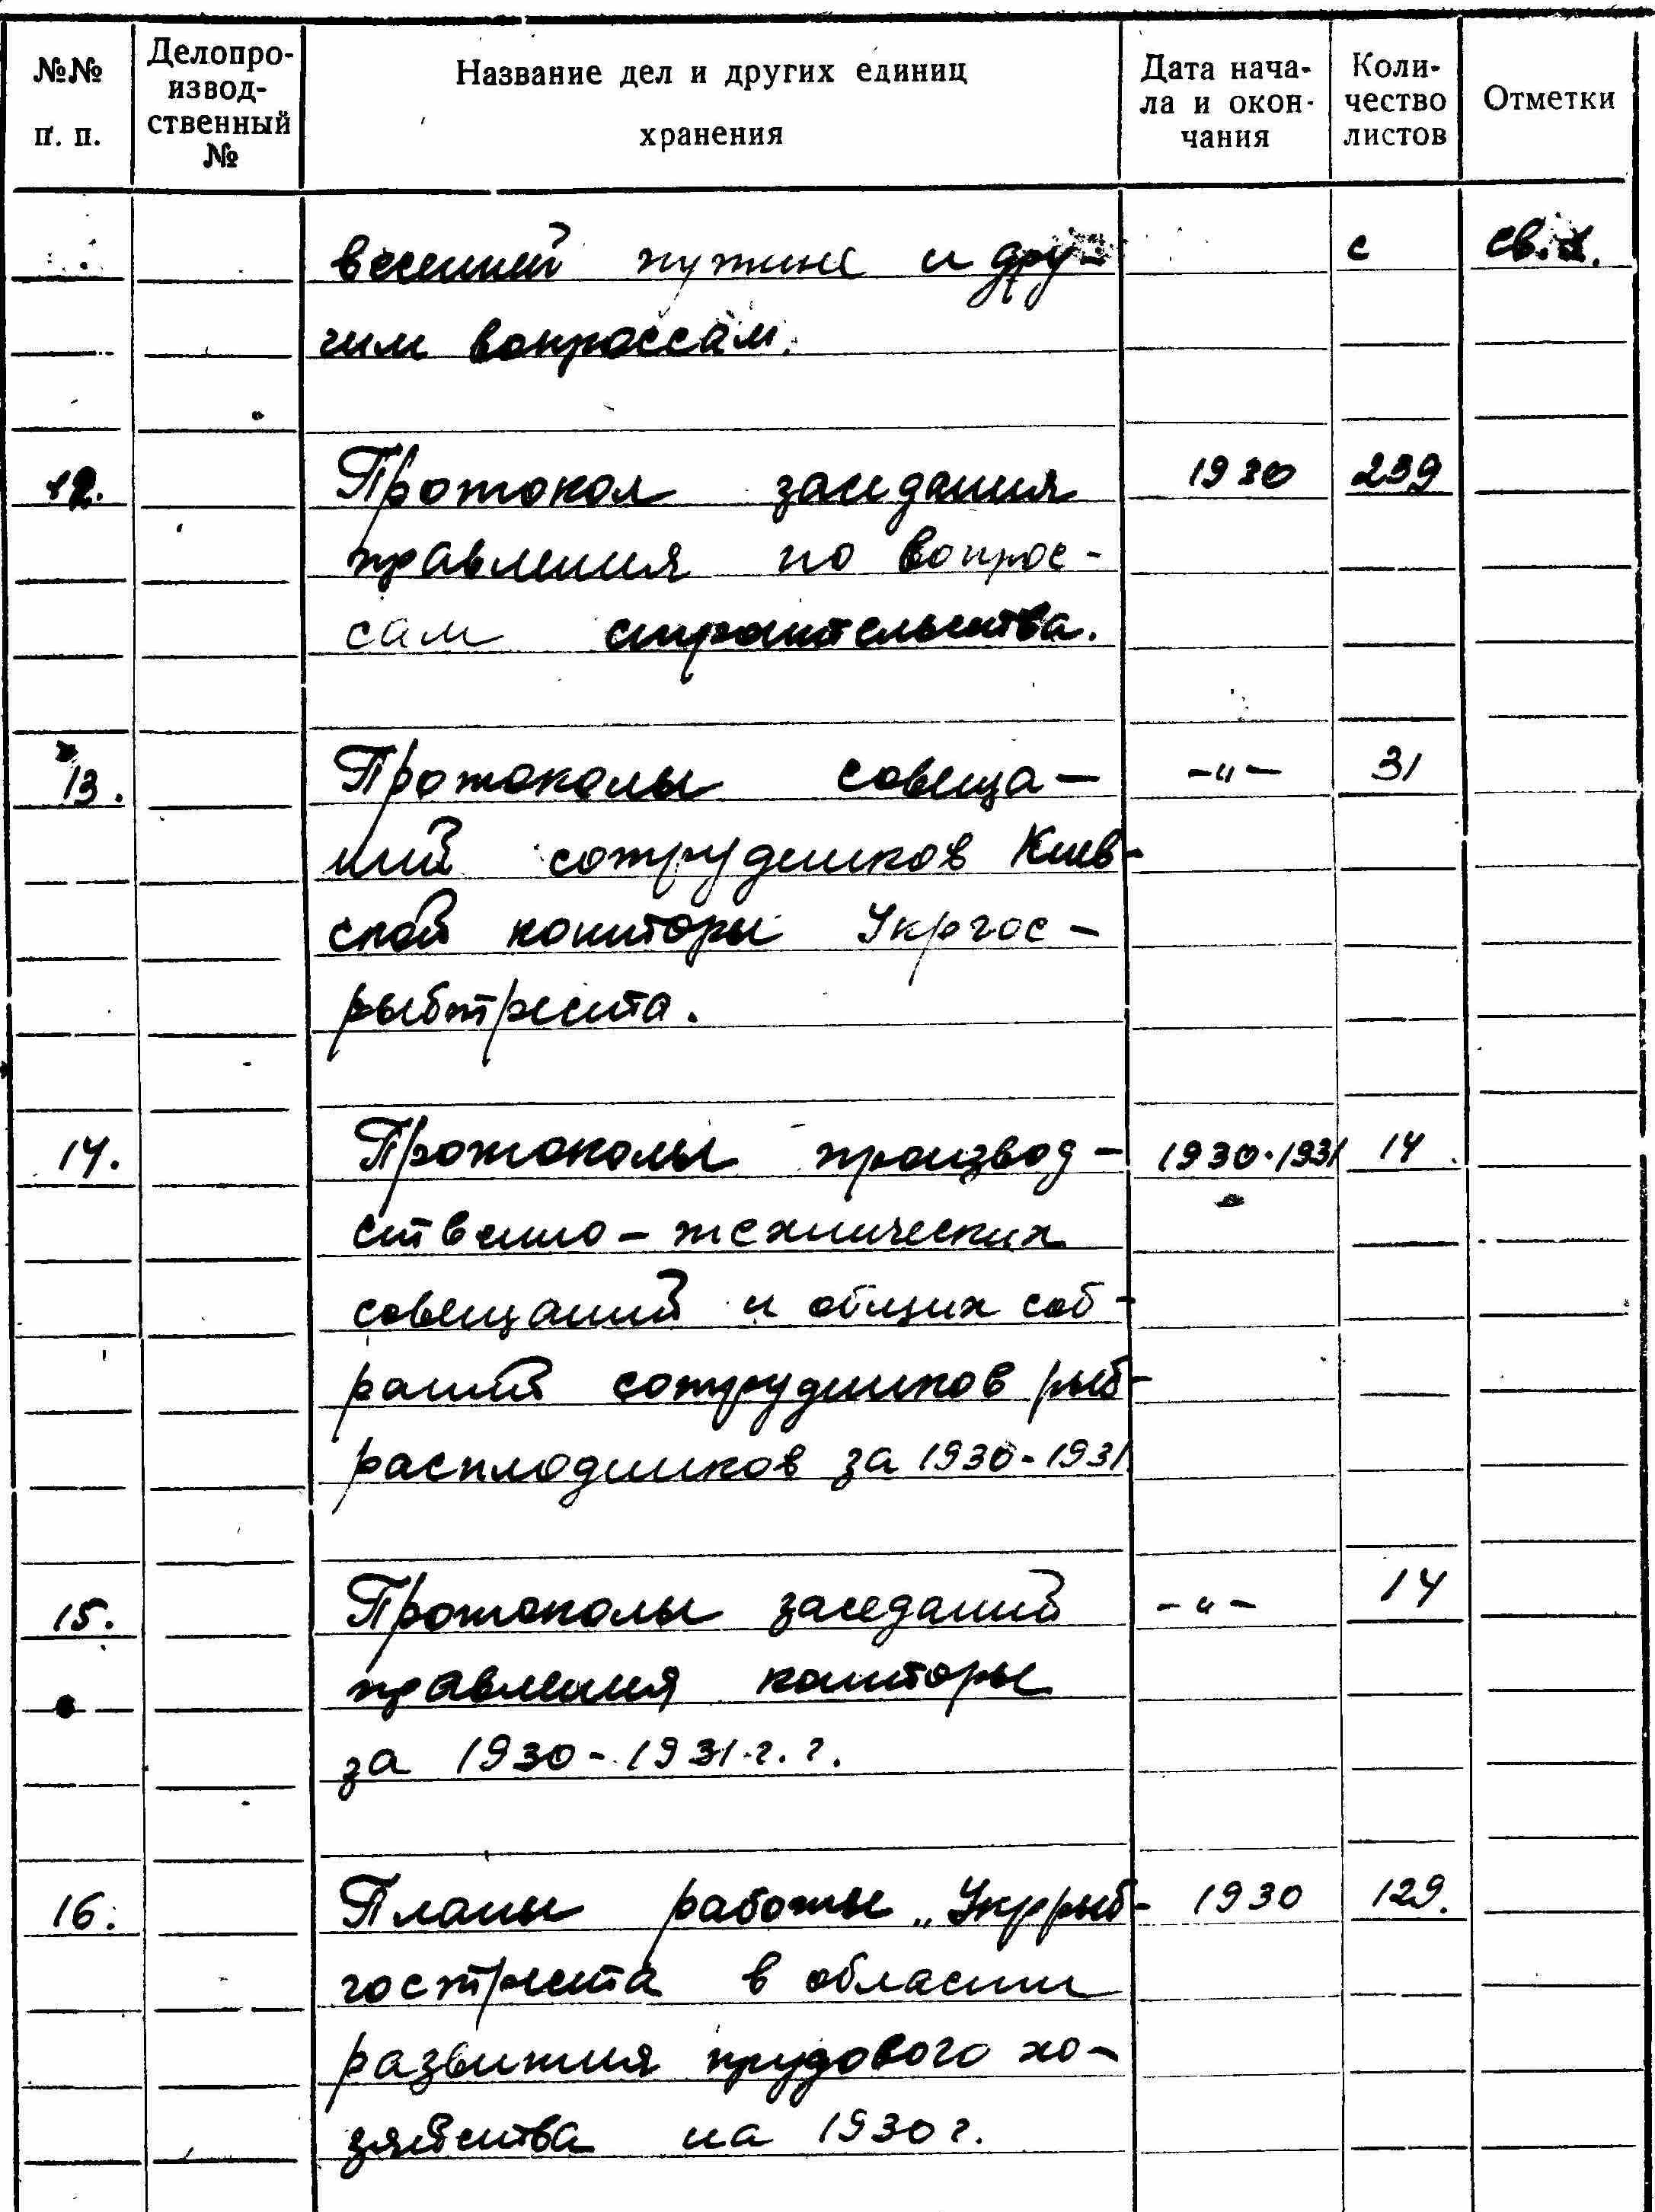 №№ п. п.
Делопро-
извод-
ственный
№
Название дел и других единиц
хранения
Дата нача-
ла и окон-
чания
Коли-
чество
листов
Отметки
весенней путине и дру- с св.
гим вопроссам.
12. Протокол заседания 1930 239
правления по вопрос-
сам строительства.
13. Протоколы совеща- -"- 31
ний сотрудников Киев-
ской конторы Укргос-
рыбтреста.
14. Протоколы производ- 1930-1931 14
ственно-технических
совещаний и общих соб-
раний сотрудников рыб-
расплодников за 1930-1931
15. Протоколы заседаний -"- 14
правления конторы
за 1930-1931 г. г.
16. Планы работы „Укррыб- 1930 129.
гостреста в области
развития прудового хо-
зяйства на 1930 г.